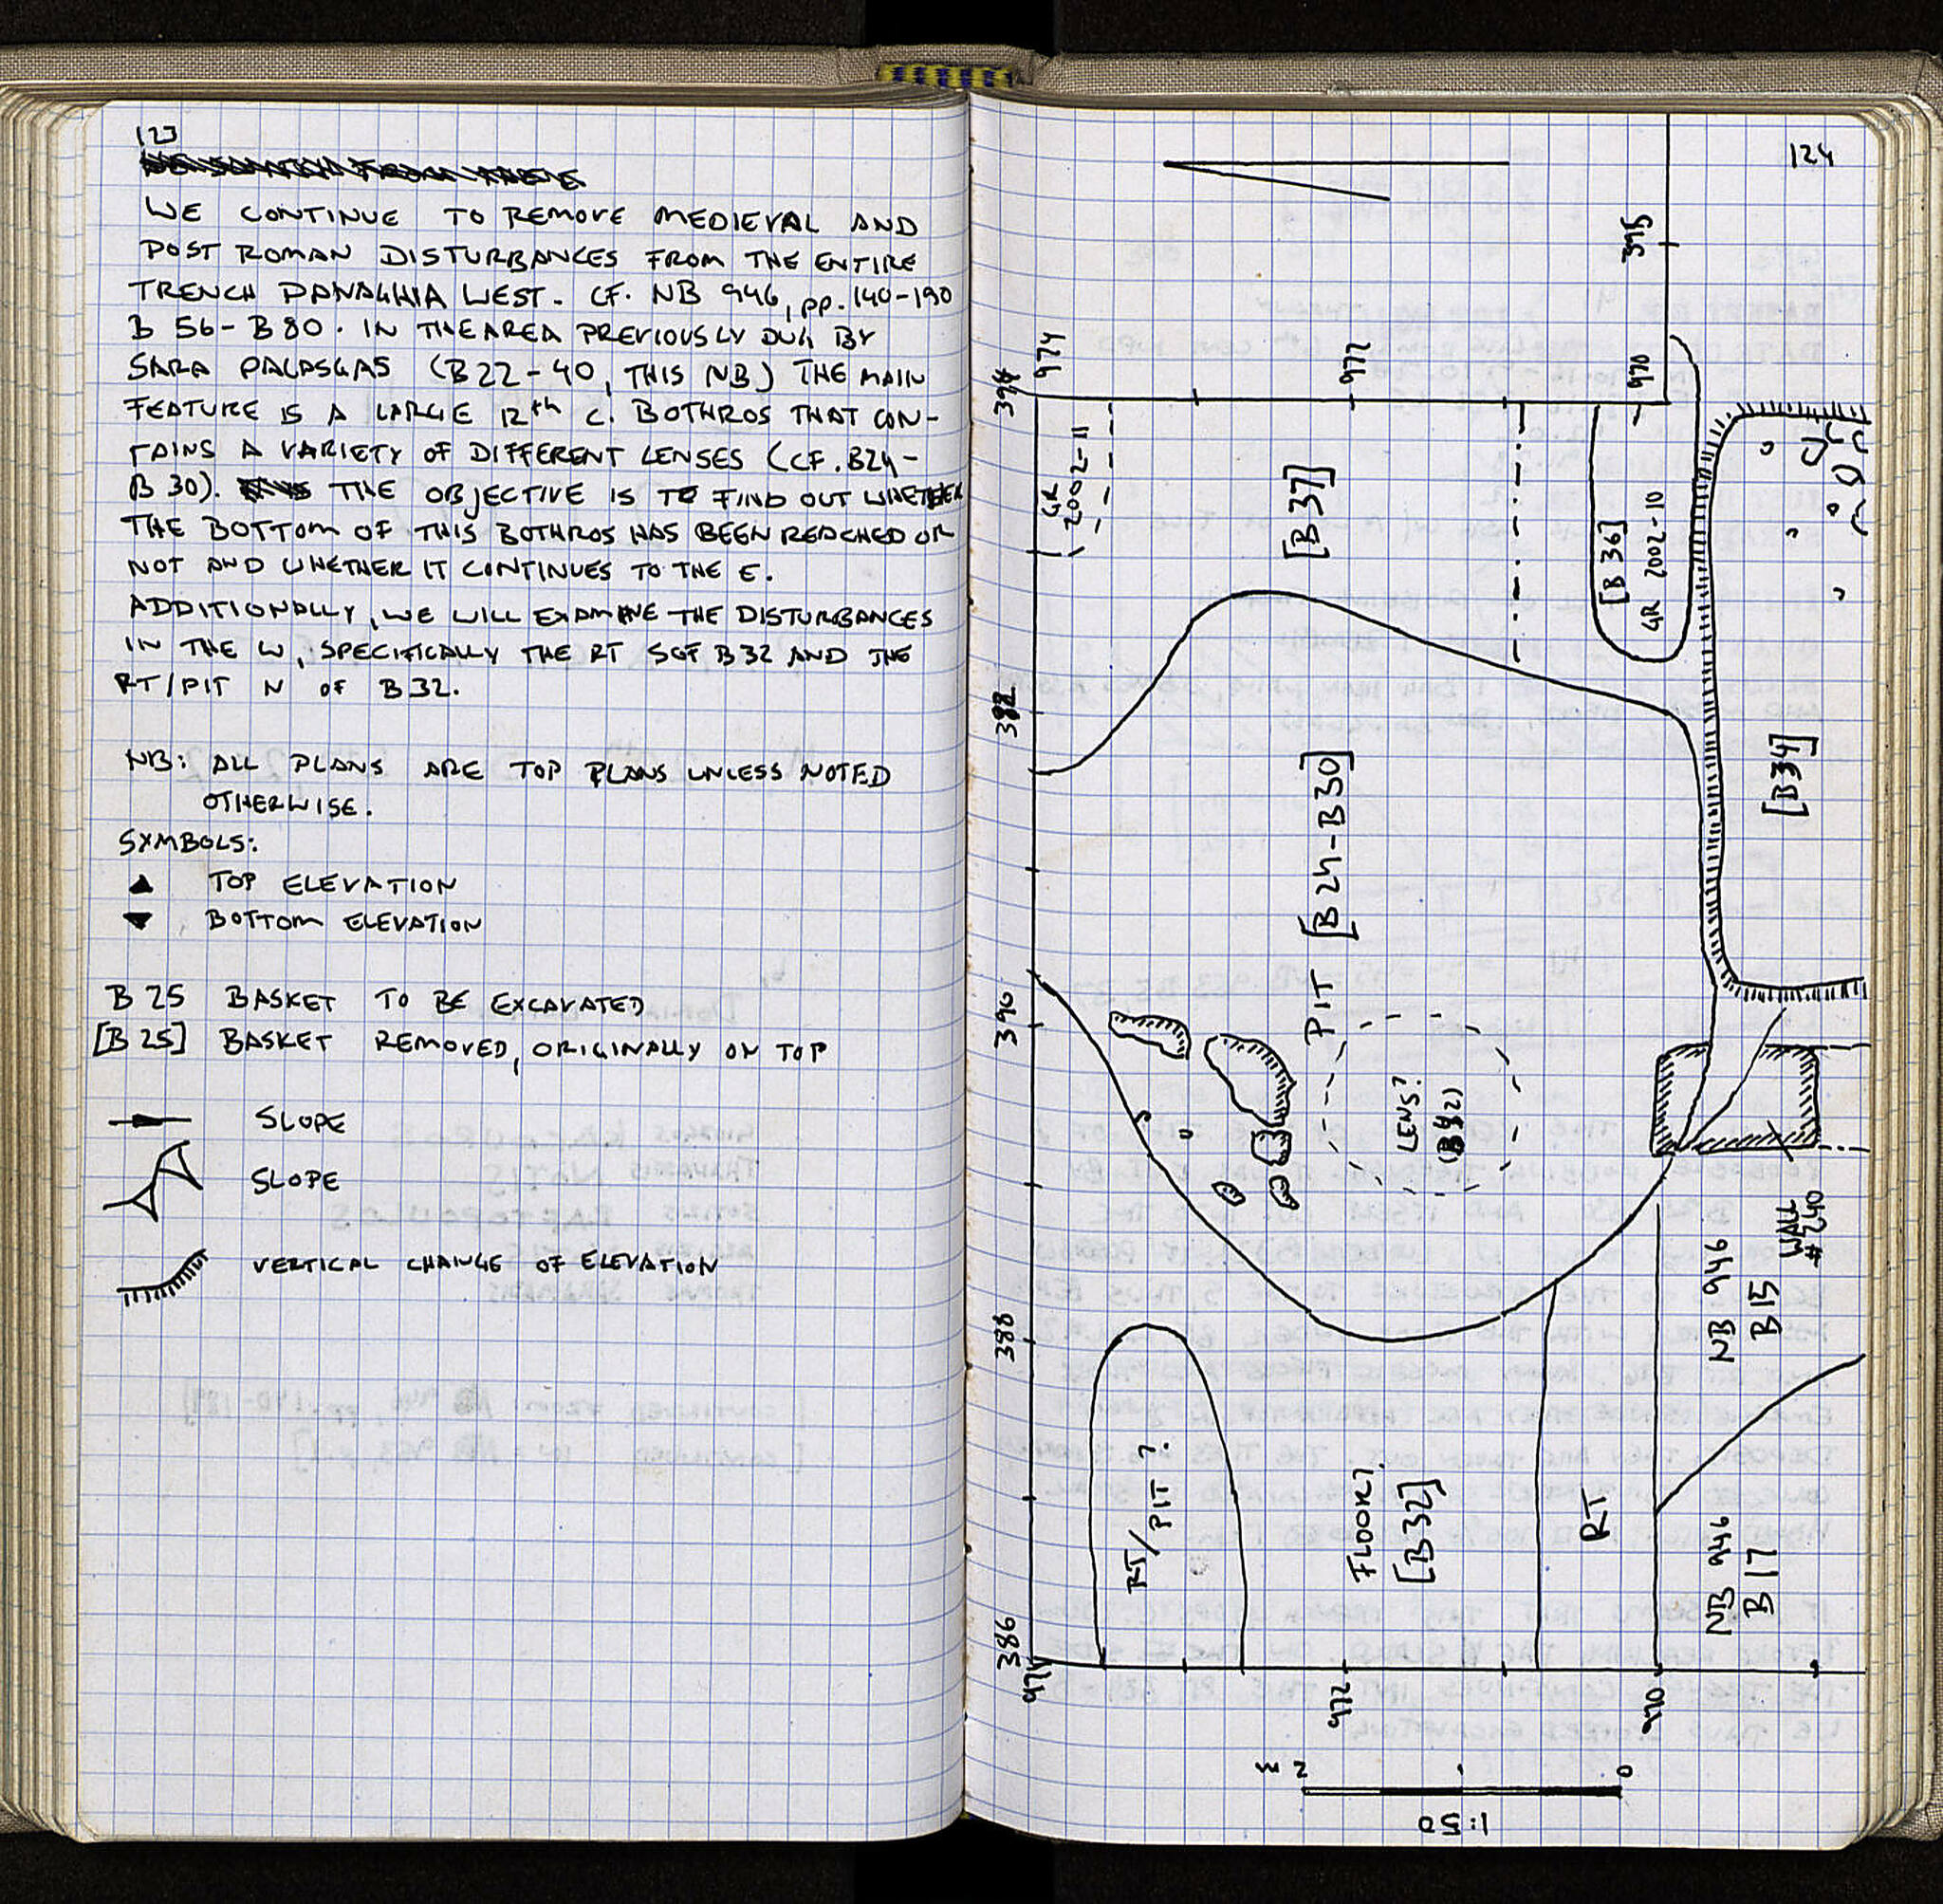 123
WE CONTINUE TO REMOVE MEDIEVAL AND
POST ROMAN DISTURBANCES FROM THE ENTIRE
TRENCH PANAGHIA WEST. CF. NB 946, pp. 140-190
B 56 - B 80. IN THE AREA PREVIOUSLY DUG BY
SARA PALASKAS (B22-40, THIS NB) THE MAIN
FEATURE IS A LARGE 12th C. BOTHROS THAT CON-
TAINS A VARIETY OF DIFFERENT LENSES (CF. B24-
B 30). THE OBJECTIVE IS TO FIND OUT WHETHER
THE BOTTOM OF THIS BOTHROS HAS BEEN REACHED OR
NOT AND WHETHER IT CONTINUES TO THE E.
ADDITIONALLY, WE WILL EXAMINE THE DISTURBANCES
IN THE W, SPECIFICALLY THE RT S OF B32 AND THE
RT/PIT N OF B32.
NB: ALL PLANS ARE TOP PLANS UNLESS NOTED
OTHERWISE.
SYMBOLS:
▲ TOP ELEVATION
▼ BOTTOM ELEVATION
B 25 BASKET TO BE EXCAVATED
[B 25] BASKET REMOVED, ORIGINALLY ON TOP
SLOPE
SLOPE
VERTICAL CHANGE OF ELEVATION
124
395
394
974
972
970
GR
2002-11
[B 37]
[B 36]
GR 2002-10
392
[B34]
PIT [B24-B30]
390
LENS?
(B42)
WALL
#240
NB 946
B 15
388
RT/PIT ?
FLOOR?
[B32]
RT
NB 946
B 17
386
974
972
970
2 m
1
0
1:50